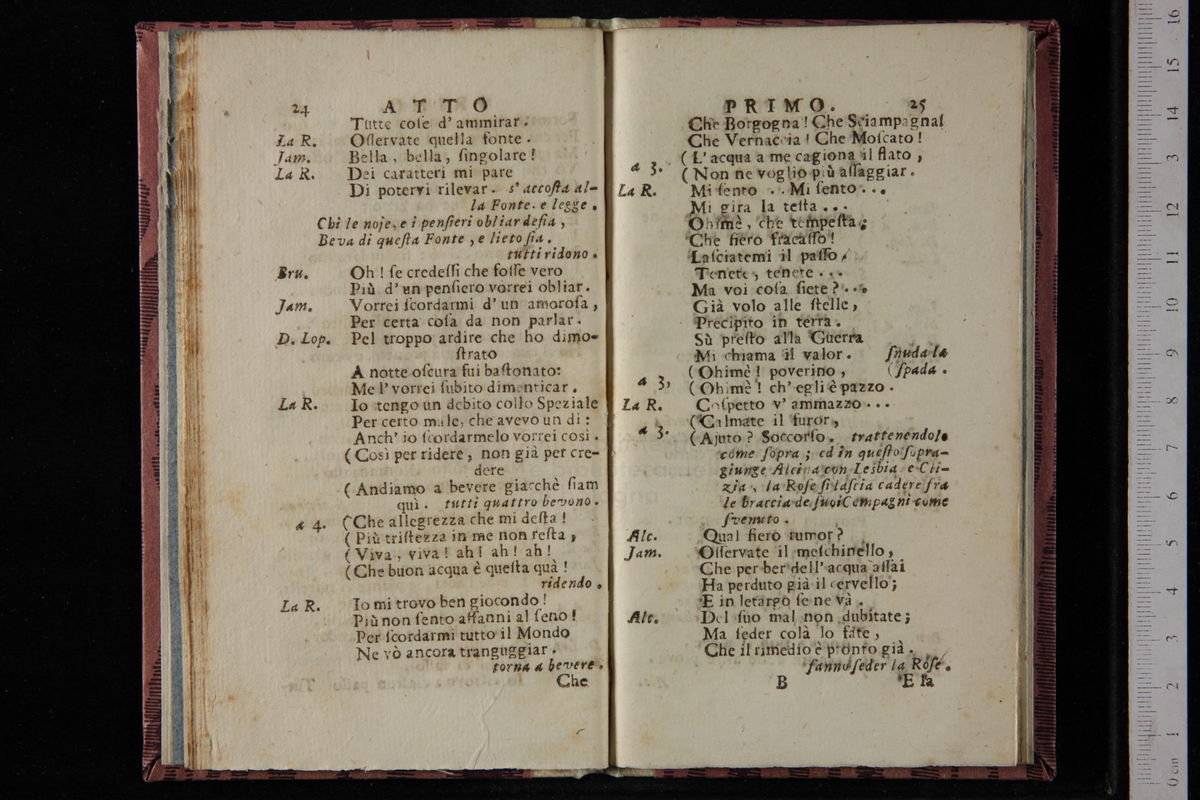 24 ATTO
Tutte cose d' ammirar.
La R. Osservate quella fonte.
Jam. Bella, bella, singolare!
La R. Dei caratteri mi pare
Di potervi rilevar. s' accosta al-
la Fonte. e legge.
Chi le noje, e i pensieri obliar desia,
Beva di questa Fonte, e lieto sia.
tutti ridono.
Bru. Oh! se credessi che fosse vero
Più d' un pensiero vorrei obliar.
Jam. Vorrei scordarmi d' un amorosa,
Per certa cosa da non parlar.
D. Lop. Pel troppo ardire che ho dimo-
strato
A notte oscura fui bastonato:
Me l' vorrei subito dimenticar.
La R. Io tengo un debito collo Speziale
Per certo male, che avevo un dì:
Anch' io scordarmelo vorrei così.
(Così per ridere, non già per cre-
dere
(Andiamo a bevere giacchè siam
quì. tutti quattro bevono.
a 4. (Che allegrezza che mi desta!
(Più tristezza in me non resta,
(Viva, viva! ah! ah! ah!
(Che buon acqua è questa quà!
ridendo.
La R. Io mi trovo ben giocondo!
Più non sento affanni al seno!
Per scordarmi tutto il Mondo
Ne vò ancora tranguggiar.
torna a bevere.
Che
PRIMO. 25
Che Borgogna! Che Sciampagna!
Che Vernaccia! Che Moscato!
(L' acqua a me cagiona il flato,
a 3. (Non ne voglio più assaggiar.
La R. Mi sento ... Mi sento ...
Mi gira la testa ...
Ohimè, che tempesta;
Che fiero fracasso!
Lasciatemi il passo,
Tenete, tenete ...
Ma voi cosa siete? ...
Già volo alle stelle,
Precipito in terra.
Sù presto alla Guerra
Mi chiama il valor. snuda la
(Ohimè! poverino, (spada.
a 3, (Ohimè! ch' egli è pazzo.
La R. Cospetto v' ammazzo ...
(Calmate il furor,
a 3. (Ajuto? Soccorso. trattenendolo
come sopra; ed in questo sopra-
giunge Alcina con Lesbia e Cli-
zia, la Rose si lascia cadere fra
le braccia de suoi Compagni come
svenuto.
Alc. Qual fiero rumor?
Jam. Osservate il meschinello,
Che per ber dell' acqua assai
Ha perduto già il cervello;
E in letargo se ne và.
Alc. Del suo mal non dubitate;
Ma seder colà lo fate,
Che il rimedio è pronto già.
fanno seder la Rose.
B E la
0 cm 1 2 3 4 5 6 7 8 9 10 11 12 13 14 15 16